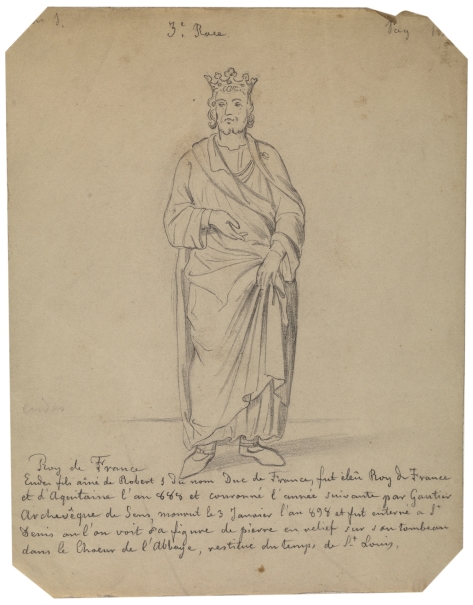 3.e Race
Puy
Eudes
Roy de France
Eudes fils aîné de Robert 1 du nom Duc de France, fut élu Roy de France
et d'Aquitaine l'an 888 et couronné l'année suivante par Gautier
Archevêque de Sens, mourut le 3 Janvier l'an 898 et fut enterré a St
Denis ou l'on voit sa figure de pierre en relief sur son tombeau
dans le Choeur de l'Abbaye, restitué du temps de St. Louis.